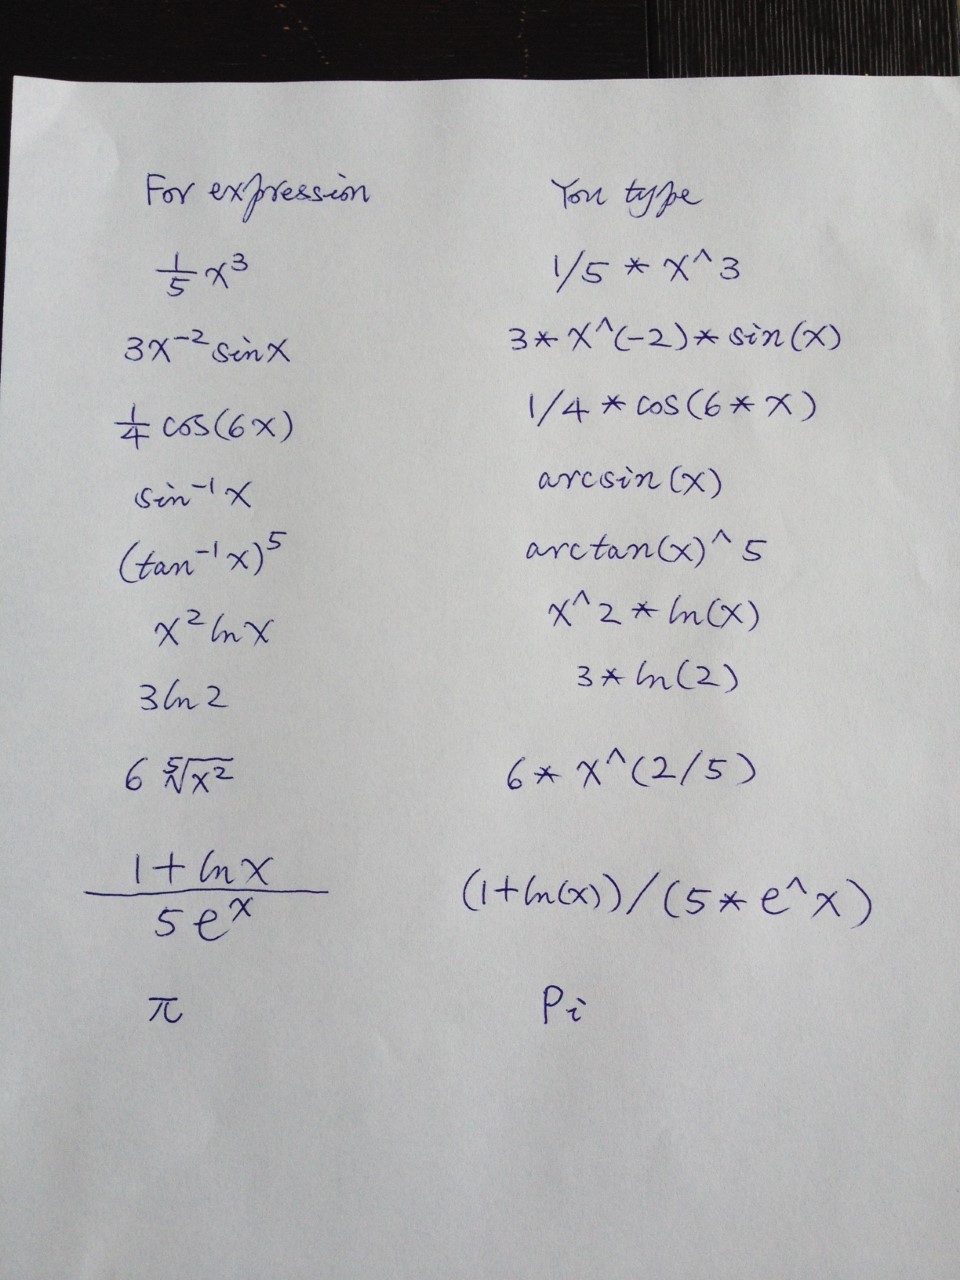 For expression You type
1/5 x³ 1/5 * x^3
3x⁻² sin x 3* x^(-2)* sin(x)
1/4 cos(6x) 1/4 * cos(6* x)
sin⁻¹ x arcsin(x)
(tan⁻¹ x)⁵ arctan(x)^5
x² ln x x^2 * ln(x)
3 ln 2 3* ln(2)
6 ⁵√x² 6* x^(2/5)
1 + ln x
(1+ln(x))/(5* e^x)
5eˣ
π Pi